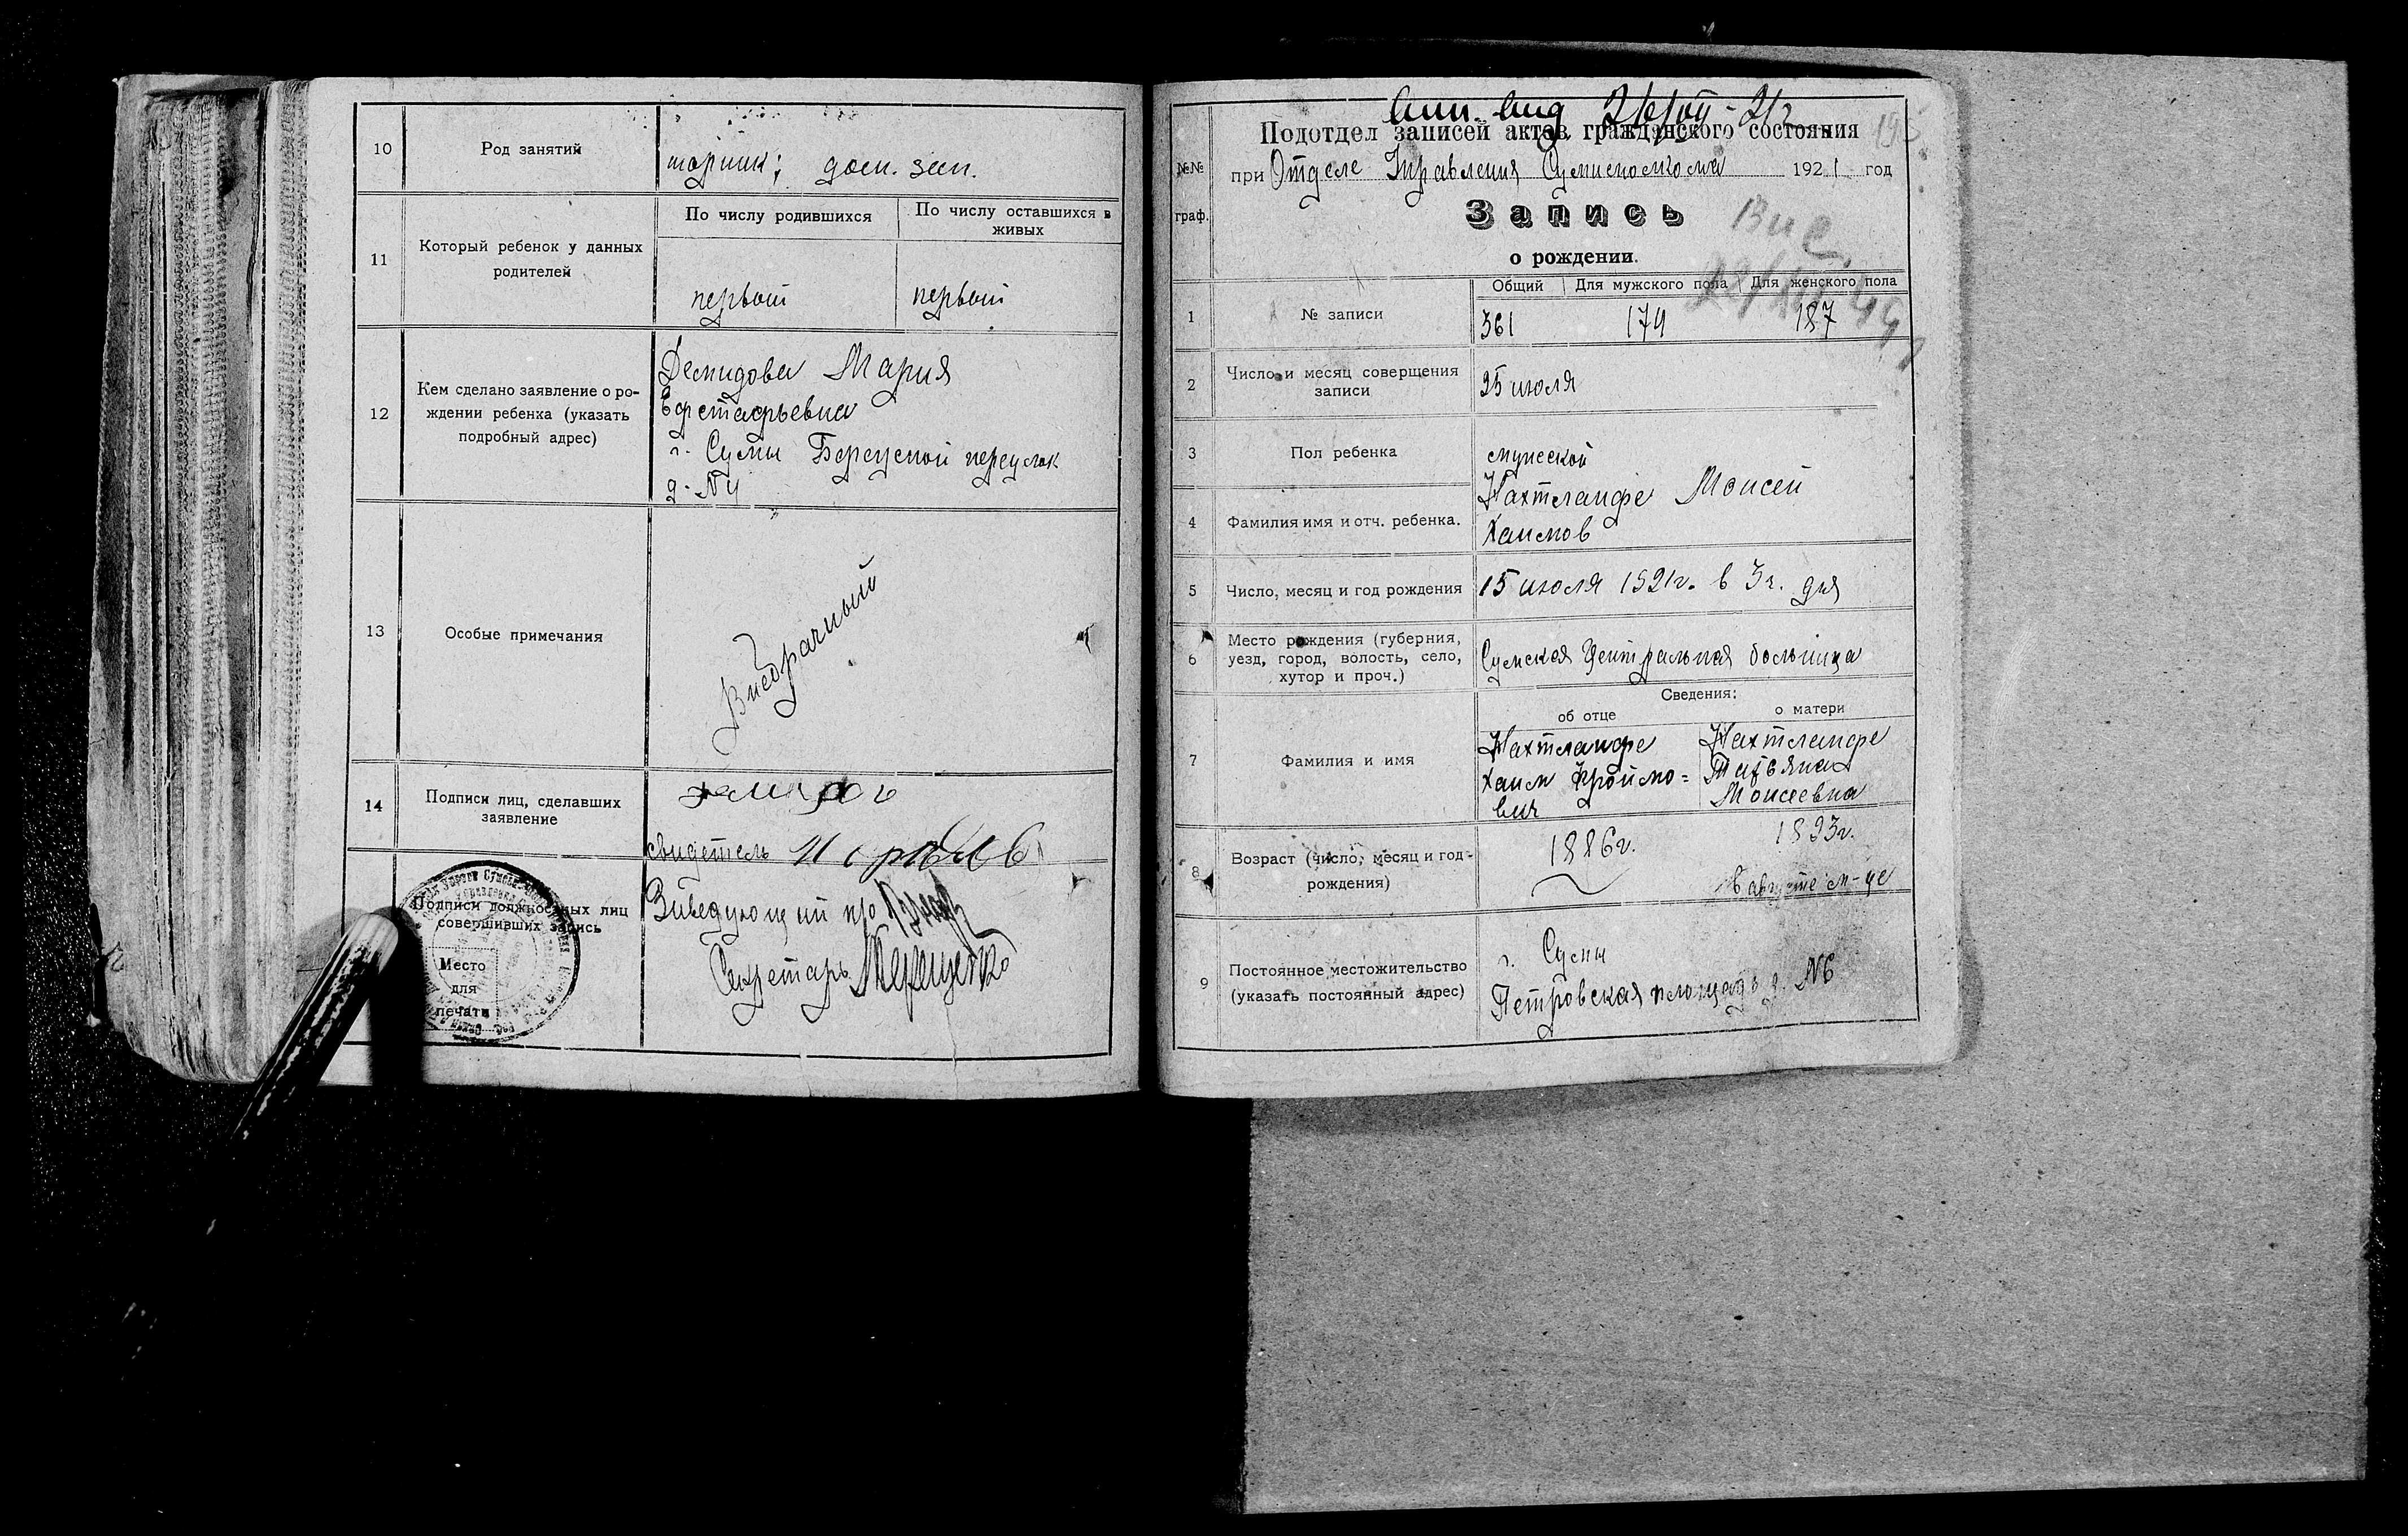 10
Род занятий
дом. зан.
11
Который ребенок у данных
родителей
По числу родившихся
По числу оставшихся в
живых
первый
первый
12
Кем сделано заявление о ро-
ждении ребенка (указать
подробный адрес)
Демидова Мария
Евстафьевна
г. Сумы переулок
д. №4
13
Особые примечания
Внебрачный
14
Подписи лиц, сделавших
заявление
свидетель
Подписи должностных лиц
совершивших запись
Место
для
печати
Заведующий п/о
Секретарь Терещенко
Подотдел записей актов гражданского состояния
№№
граф.
при Отделе Управления Сумисполкома 1921 год
Запись
о рождении.
1
№ записи
Общий
Для мужского пола
Для женского пола
361
174
187
2
Число и месяц совершения
записи
25 июля
3
Пол ребенка
мужской
4
Фамилия имя и отч. ребенка.
Нахтлаифе Моисей
Хаимов
5
Число, месяц и год рождения
15 июля 1921г. в 3ч. дня
6
Место рождения (губерния,
уезд, город, волость, село,
хутор и проч.)
Сумская Центральная больница
Сведения:
об отце
о матери
7
Фамилия и имя
Нахтлаифе
Хаим Фроймо=
вич
Нахтлаифе
Татьяна
Моисеевна
8
Возраст (число, месяц и год
рождения)
1886г.
1893г.
в августе м-це
9
Постоянное местожительство
(указать постоянный адрес)
г. Сумы
Петровская площадь д. №6